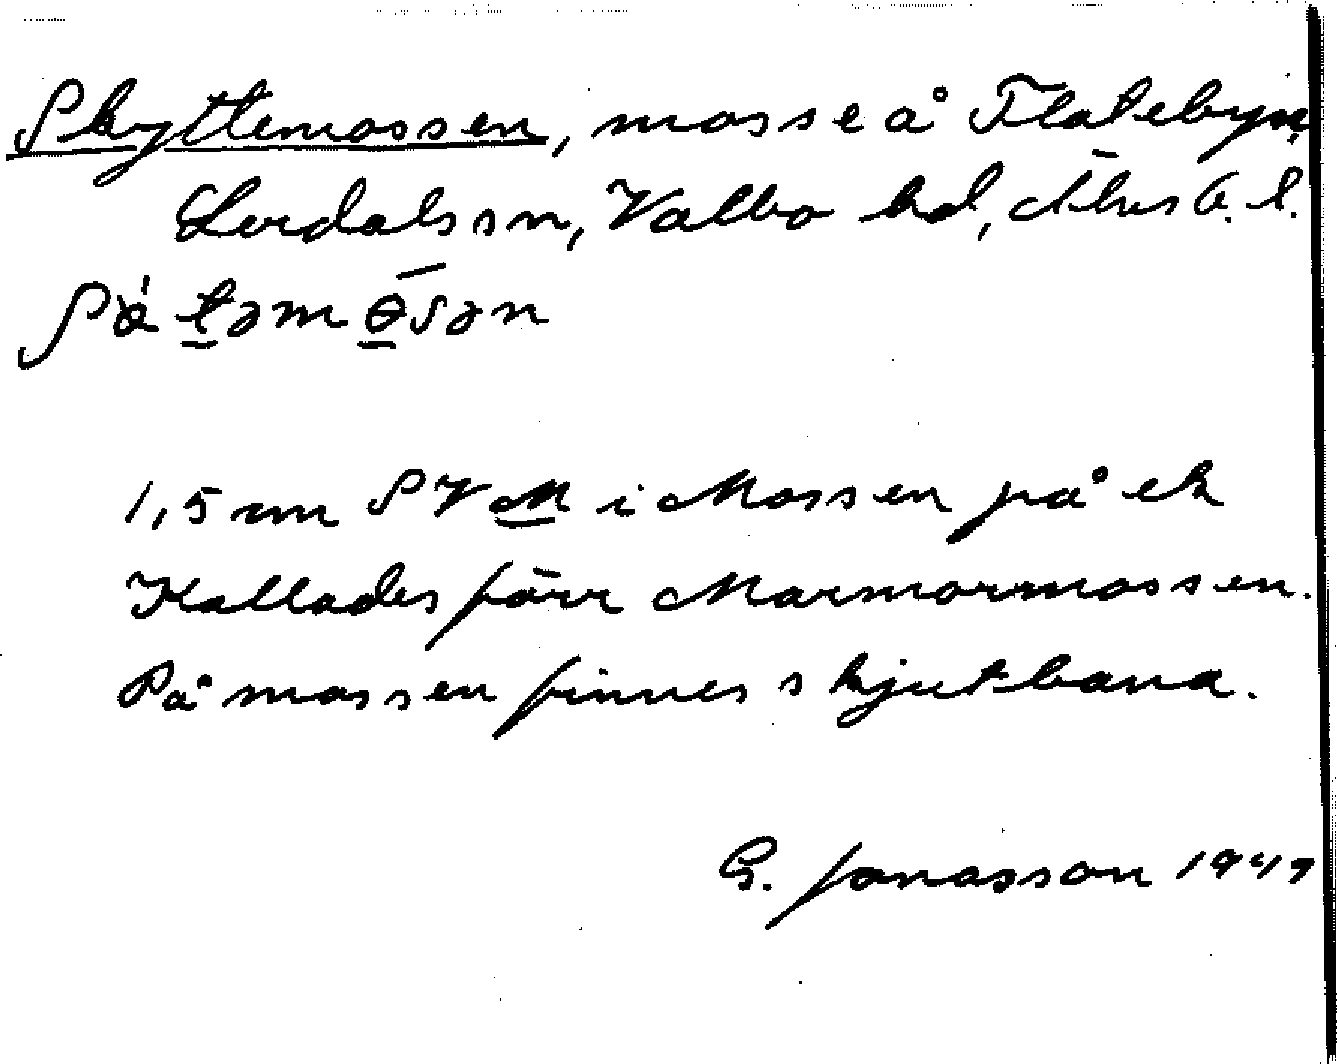 Skyttemossen, mosse å Flatebyn,
Lerdals sn, Valbo hd, Älvs b. l.
1,5 cm SV M i Mossen på ek
Kallades förr Marmormossen.
På mossen finnes skjutbana.
G. Jonasson 1949